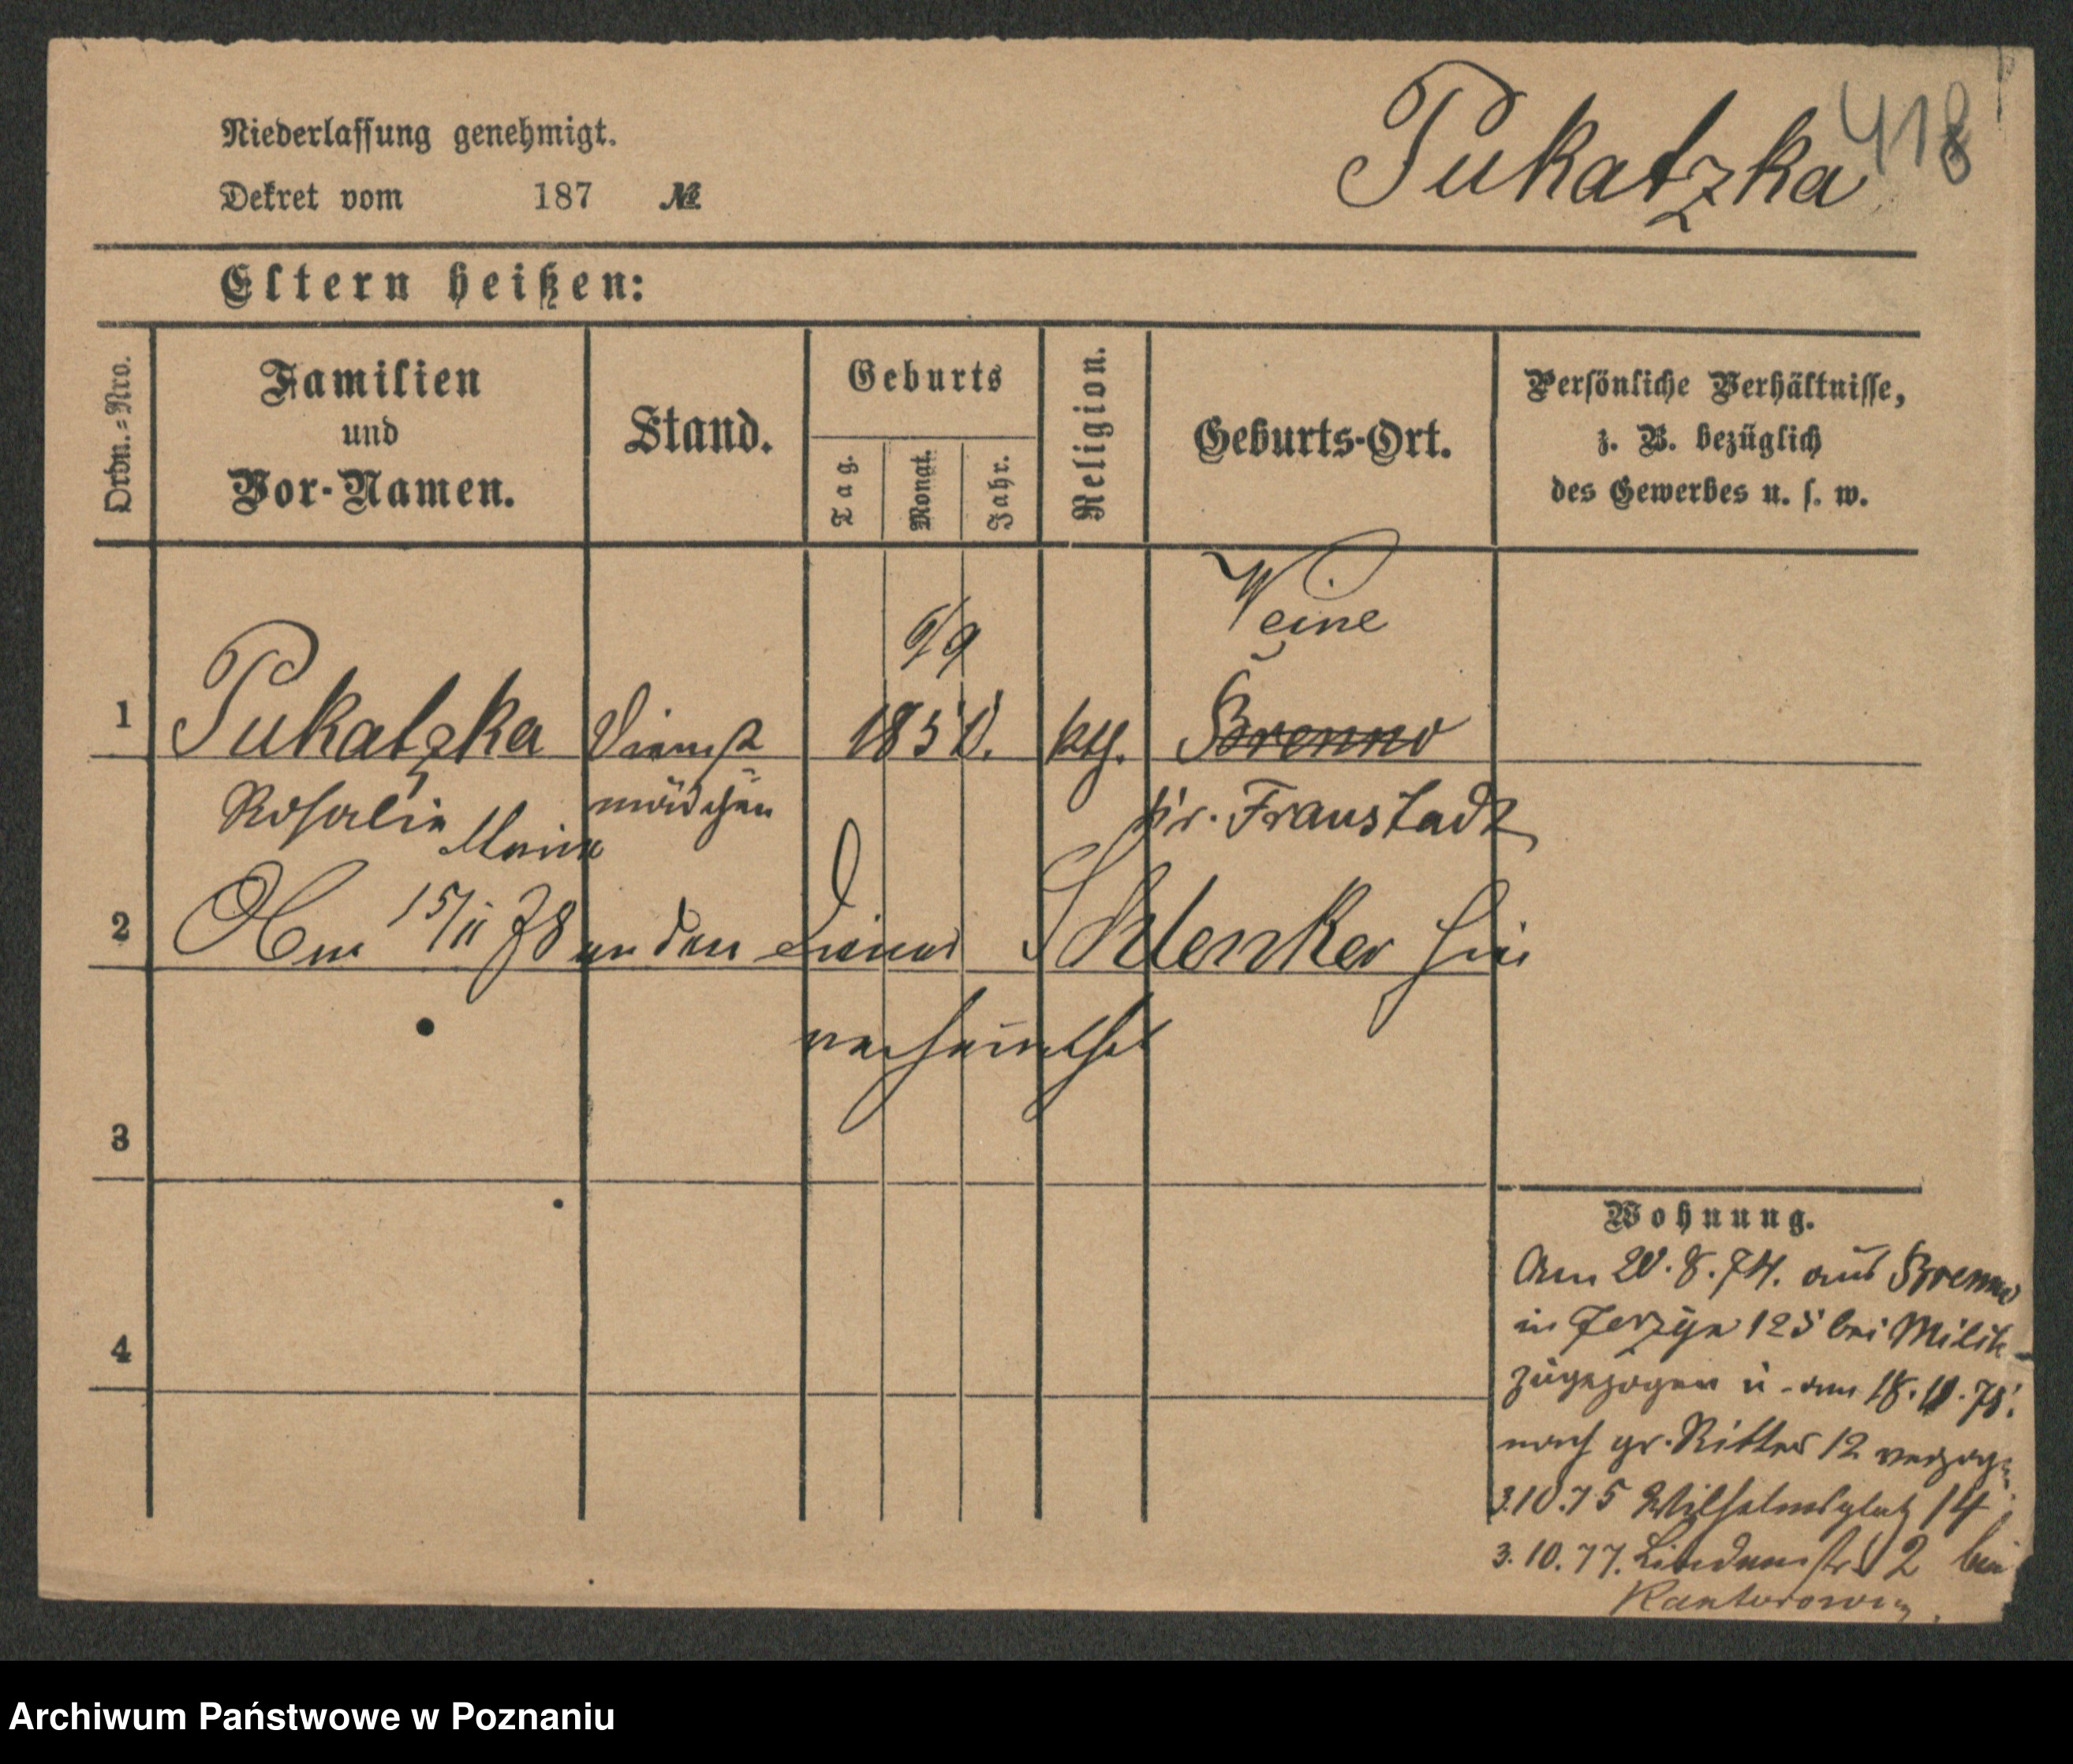 418
Pukatzka
Niederlassung genehmigt.
Dekret vom 187 №
Eltern heißen:
Ordn.=Nro.
Familien
und
Vor-Namen.
Stand.
Geburts
Tag.
Monat.
Jahr.
Religion.
Geburts-Ort.
Persönliche Verhältnisse,
z. B. bezüglich
des Gewerbes u. s. w.
Weine
1 Pukatzka Dienst 1850. kth. Brenno
Rosalie Marie mädchen Kr. Fraustadt
2 Am 15/11 78 an den Diener Schlenker hier
verheirathet
3
4
Wohnung.
Am 20.8.74. aus Brenno
in Jerzyce 125 bei Milch
zugezogen u. am 18.11.75.
nach gr. Ritter 12 verzogen
3.10.75 Wilhelmsplatz 14
3.10.77. Lindenstr. 2 bei
Kantorowicz.
Archiwum Państwowe w Poznaniu